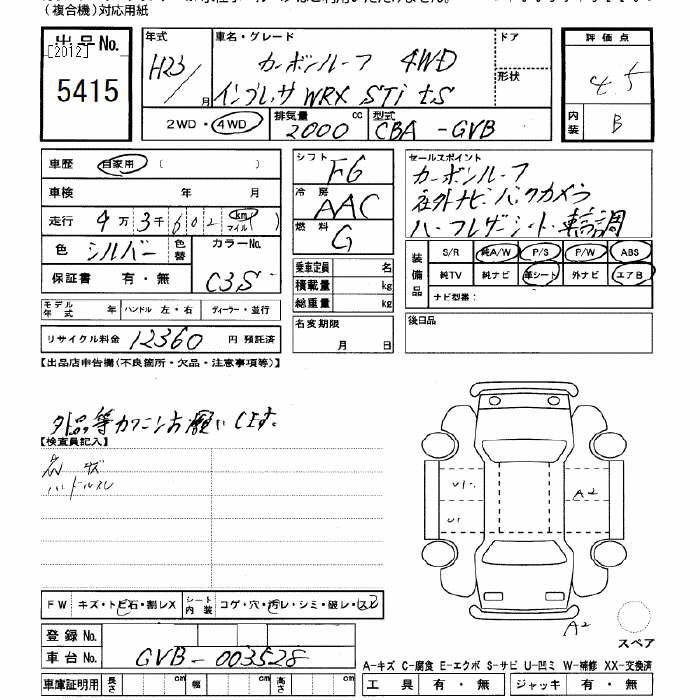 (複合機)対応用紙
出品No.
[2012]
5415
年式 H23/ 月
車名・グレード カーボンルーフ 4WD
インプレッサ WRX STi tS
ドア
形状
評価点
4.5
内装 B
2WD・4WD 排気量 2000 cc 型式 CBA-GVB
車歴 自家用 (
車検 年 月
走行 4万3千602 km マイル )
色 シルバー 色替 カラーNo.
保証書 有・無 C3S
モデル年式 年 ハンドル 左・右 ディーラー・並行
リサイクル料金 12360 円 預託済
シフト F6
冷房 AAC
燃料 G
乗車定員 名
積載量 kg
総重量 kg
名変期限
月 日
セールスポイント
カーボンルーフ
社外ナビ バックカメラ
ハーフレザーシート・車高調
装備品 S/R 純A/W P/S P/W ABS
純TV 純ナビ 革シート 外ナビ エアB
ナビ型番:
後日品
【出品店申告欄(不良箇所・欠品・注意事項等)】
外品等カクニンお願いします。
【検査員記入】
ハンドルスレ
U1
U1
A2
A2
FW キズ・トビ石・割レX シート内装 コゲ・穴・汚レ・シミ・破レ・スレ
登録No.
車台No. GVB-003528
スペア
車庫証明用 長さ cm 幅 cm 高さ cm
A-キズ C-腐食 E-エクボ S-サビ U-凹ミ W-補修 XX-交換済
工具 有・無 ジャッキ 有・無